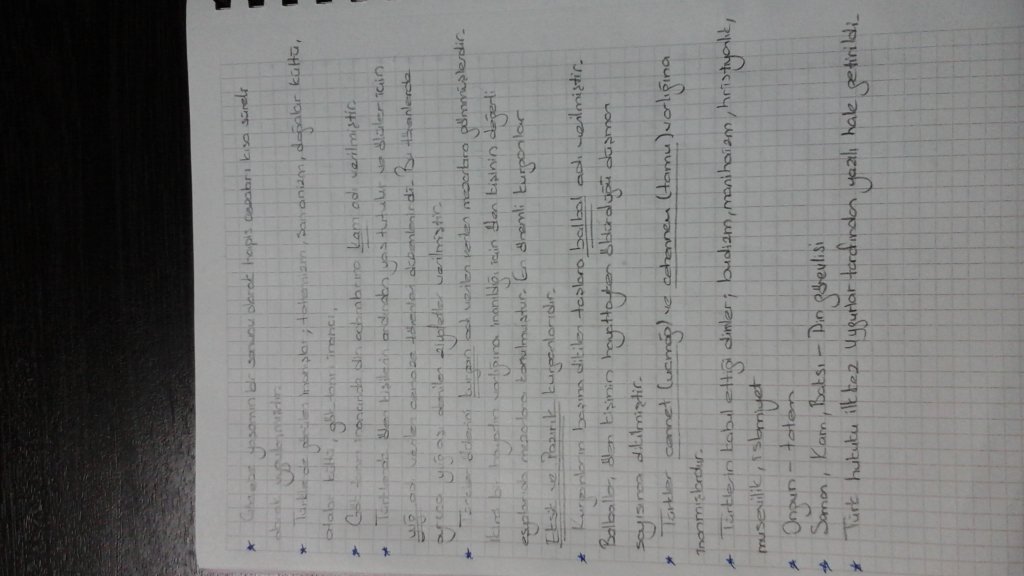 * Göçebe yaşamın bir sonucu olarak hapis cezaları kısa süreli
olarak uygulanmıştır.
* Türklerde görülen inanışlar; totemizm, şamanizm, doğalar kültü,
atalar kültü, gök tanrı inancı,
* Gök tanrı inancında din adamlarına kam adı verilmiştir.
* Türklerde ölen kişilerin ardından yas tutulur ve ölüler için
yuğ adı verilen cenaze törenleri düzenlenirdi. Bu törenlerde
ayrıca yuğ aşı denilen ziyafetler verilmiştir.
* Türkler ölülerini kurgan adı verilen verilen mezarlara gömmüşlerdir.
İkinci bir hayatın varlığına inanıldığı için ölen kişinin değerli
eşyalarıda mezarlara konulmuştur. En önemli kurganlar
Esik ve Pazırık kurganlarıdır.
* Kurganların başına dikilen taşlara balbal adı verilmiştir.
Balballar, ölen kişinin hayattayken öldürdüğü düşman
sayısınca dikilmiştir.
* Türkler cennet (uçmağ) ve cehennem (tamu) varlığına
inanmışlardır.
* Türklerin kabul ettiği dinler; budizm, manihaizm, hristiyanlık,
musevilik, islamiyet
* Ongun - totem
* Şaman, Kam, Baksı - Din görevlisi
* Türk hukuku ilk kez Uygurlar tarafından yazılı hale getirildi.